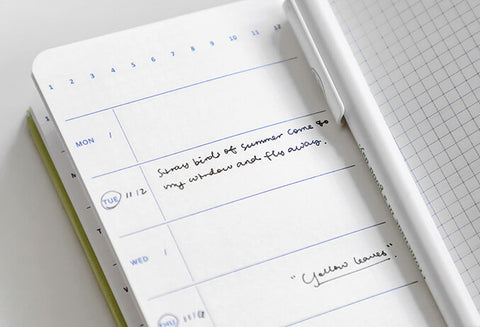 1 2 3 4 5 6 7 8 9 10 11 12
MON /
TUE 11/2
Stray birds of summer come to
my window and fly away.
WED /
"Yellow leaves".